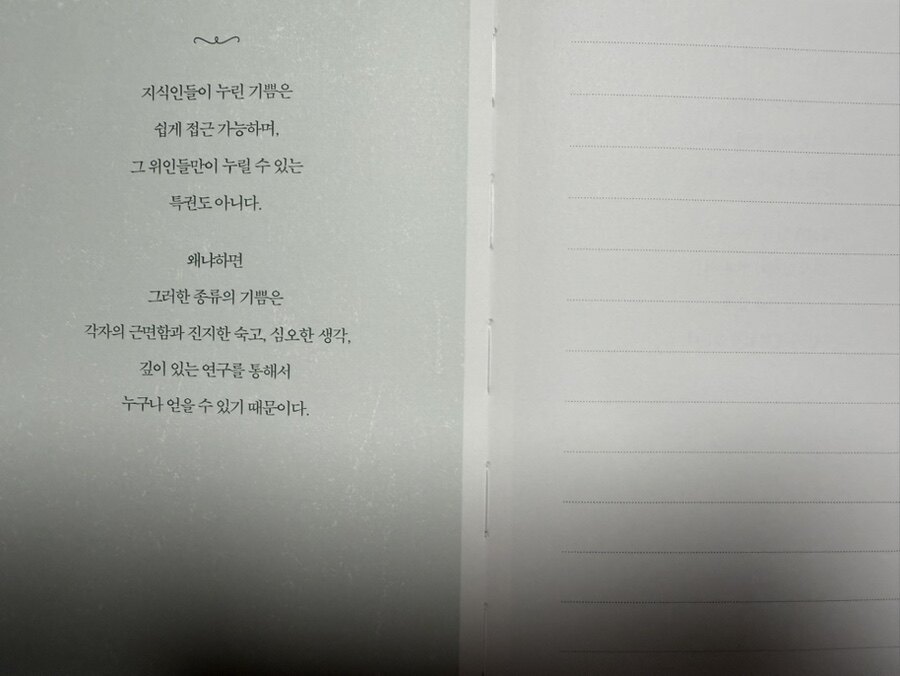 지식인들이 누린 기쁨은
쉽게 접근 가능하며,
그 위인들만이 누릴 수 있는
특권도 아니다.
왜냐하면
그러한 종류의 기쁨은
각자의 근면함과 진지한 숙고, 심오한 생각,
깊이 있는 연구를 통해서
누구나 얻을 수 있기 때문이다.